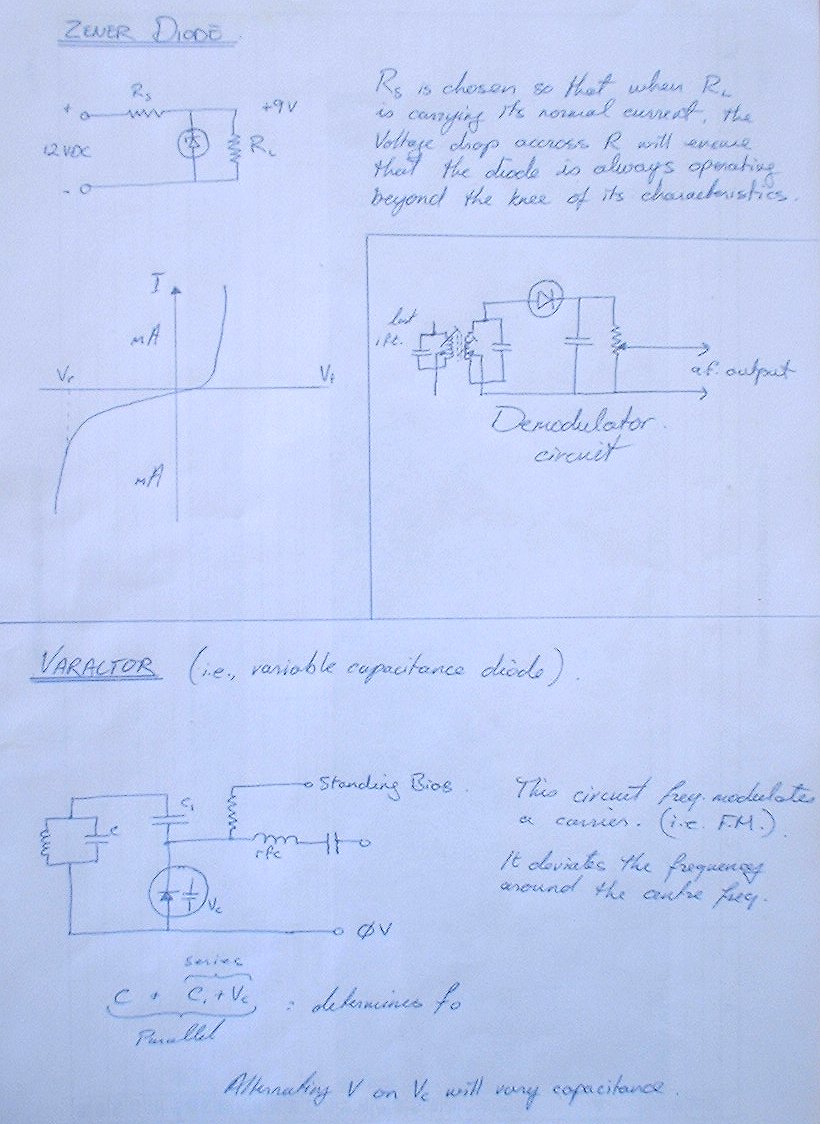 ZENER DIODE
Rs
+
+9V
12VDC
RL
-
Rs is chosen so that when RL
is carrying its normal current, the
Voltage drop accross R will ensure
that the diode is always operating
beyond the knee of its characteristics.
I
mA
Vr
Vf
mA
last
i.f.t.
a.f. output
Demodulator
circuit
VARACTOR (i.e., variable capacitance diode).
Standing Bias.
C1
C
rfc
Vc
ØV
This circuit freq. modulates
a carrier. (i.e. F.M.).
It deviates the frequency
around the centre freq.
series
C + C1 + Vc : determines fo
Parallel
Alternating V on Vc will vary capacitance.